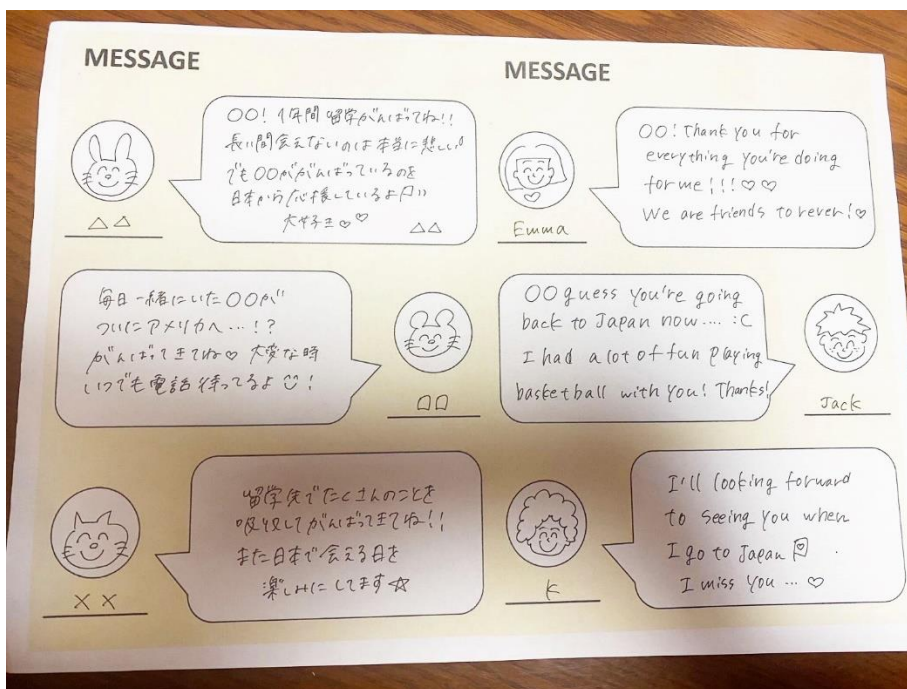 MESSAGE
〇〇! 1年間留学がんばってね!!
長い間会えないのは本当に悲しい
でも〇〇ががんばっているのを
日本から応援しているよ
大好き♡♡ △△
△△
毎日一緒にいた〇〇が
ついにアメリカへ…!?
がんばってきてね♡ 大変な時
いつでも電話待ってるよ!
留学先でたくさんのことを
吸収してがんばってきてね!!
また日本で会える日を
楽しみにしてます☆
××
MESSAGE
〇〇! Thank you for
everything you're doing
for me!!!♡♡
We are friends forever!♡
Emma
〇〇 guess you're going
back to Japan now.... :C
I had a lot of fun playing
basketball with you! Thanks!
Jack
I'll looking forward
to seeing you when
I go to Japan
I miss you ... ♡
K